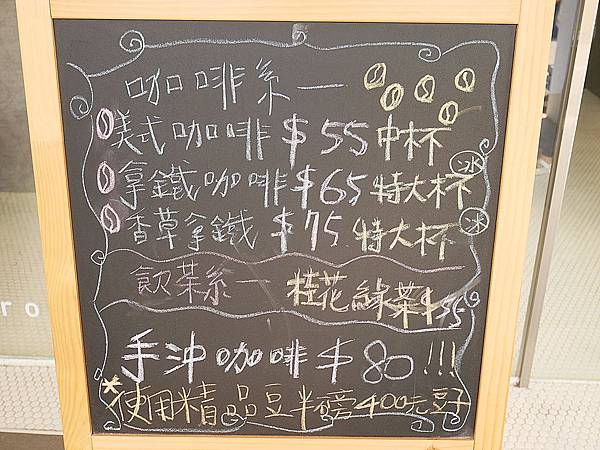 咖啡系一
美式咖啡$55中杯
拿鐵咖啡$65特大杯冰
香草拿鐵$75特大杯冰
飲茶系一桂花綠茶$35
手沖咖啡$80!!!
*使用精品豆半磅400元豆子
ro